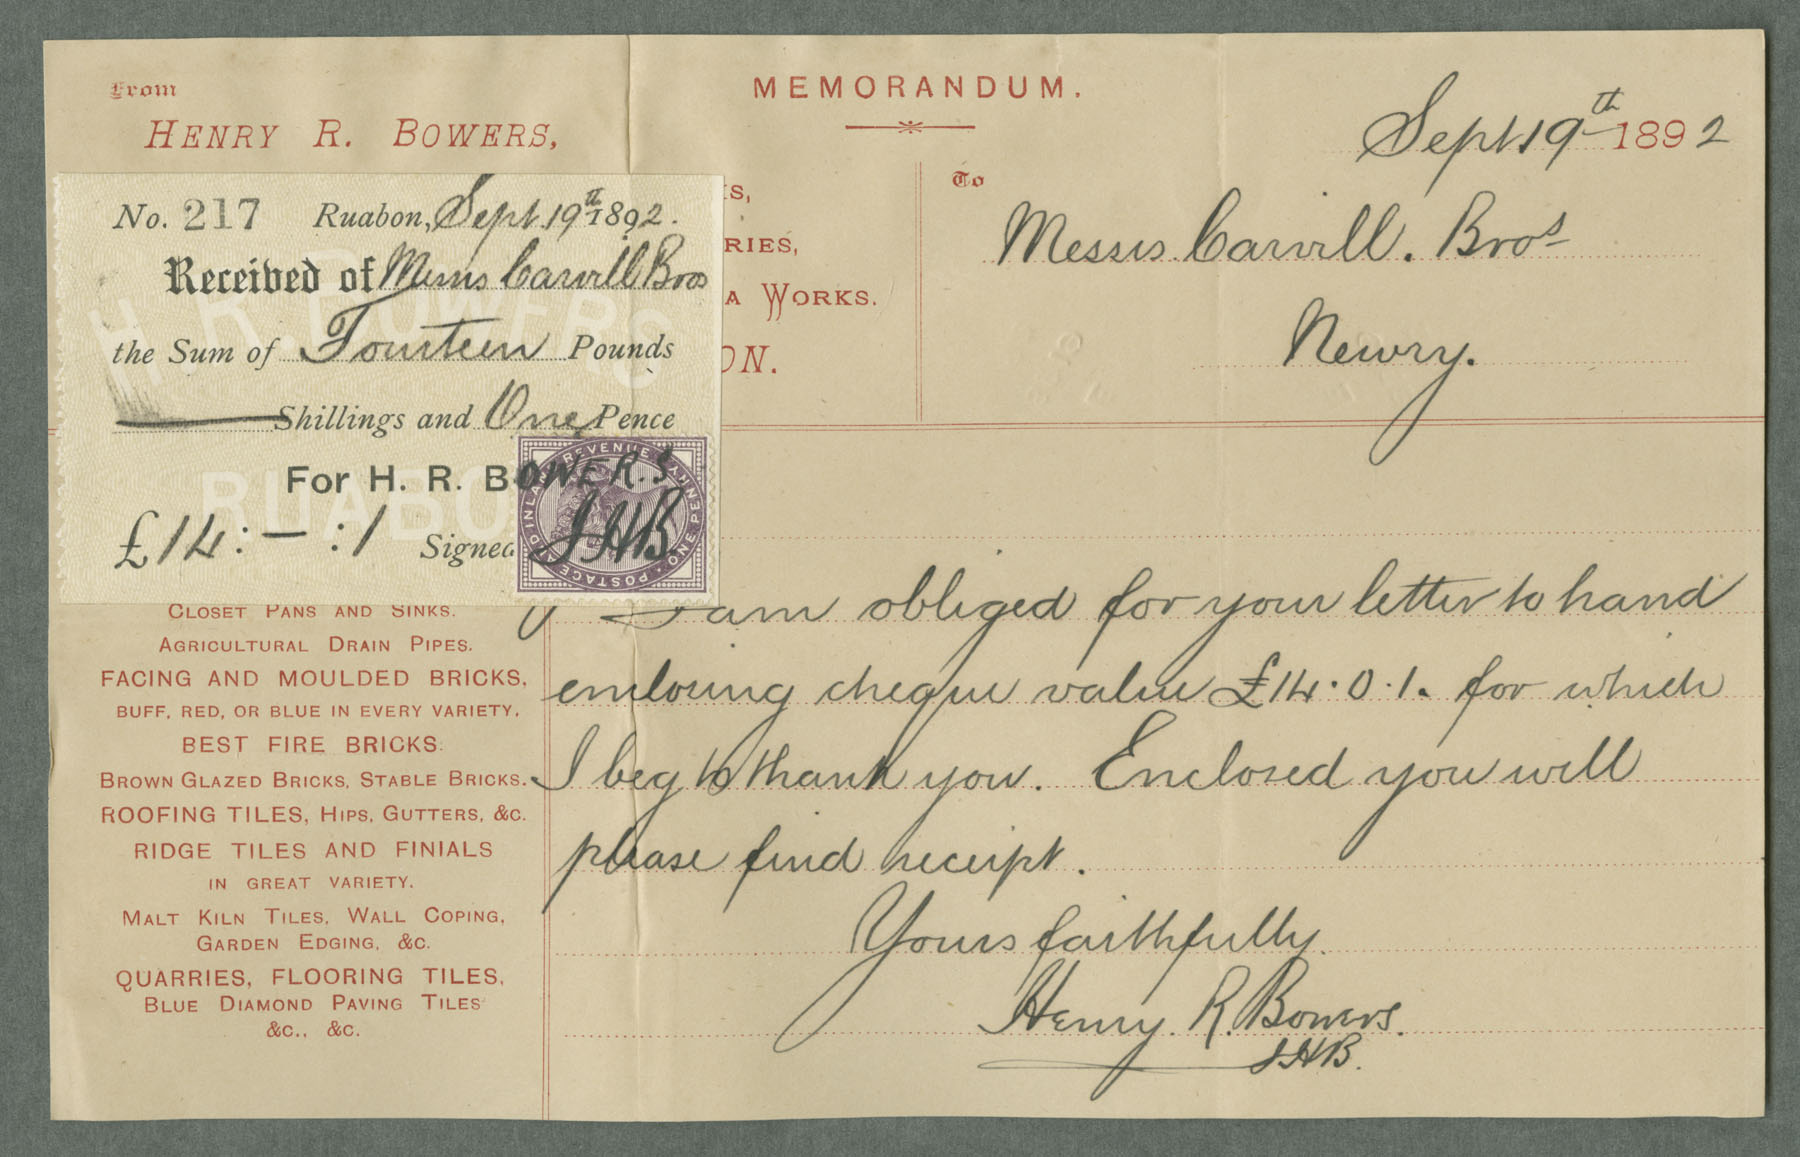 From
HENRY R. BOWERS,
MEMORANDUM.
Sept. 19th 1892
To
Messrs. Carvill. Bros
Newry.
RIES,
A WORKS.
ON.
No. 217 Ruabon, Sept. 19th 1892.
Received of Messrs Carvill Bros
the Sum of Fourteen Pounds
Shillings and One Pence
For H. R. BOWERS
£14 : — : 1 Signed JHB.
H. R. BOWERS
RUABO
POSTAGE AND INLAND REVENUE
ONE PENNY
CLOSET PANS AND SINKS.
AGRICULTURAL DRAIN PIPES.
FACING AND MOULDED BRICKS,
BUFF, RED, OR BLUE IN EVERY VARIETY.
BEST FIRE BRICKS.
BROWN GLAZED BRICKS, STABLE BRICKS.
ROOFING TILES, HIPS, GUTTERS, &C.
RIDGE TILES AND FINIALS
IN GREAT VARIETY.
MALT KILN TILES, WALL COPING,
GARDEN EDGING, &C.
QUARRIES, FLOORING TILES,
BLUE DIAMOND PAVING TILES
&C., &C.
I am obliged for your letter to hand
enclosing cheque value £14.0.1. for which
I beg to thank you. Enclosed you will
please find receipt.
Yours faithfully.
Henry. R. Bowers.
JHB.